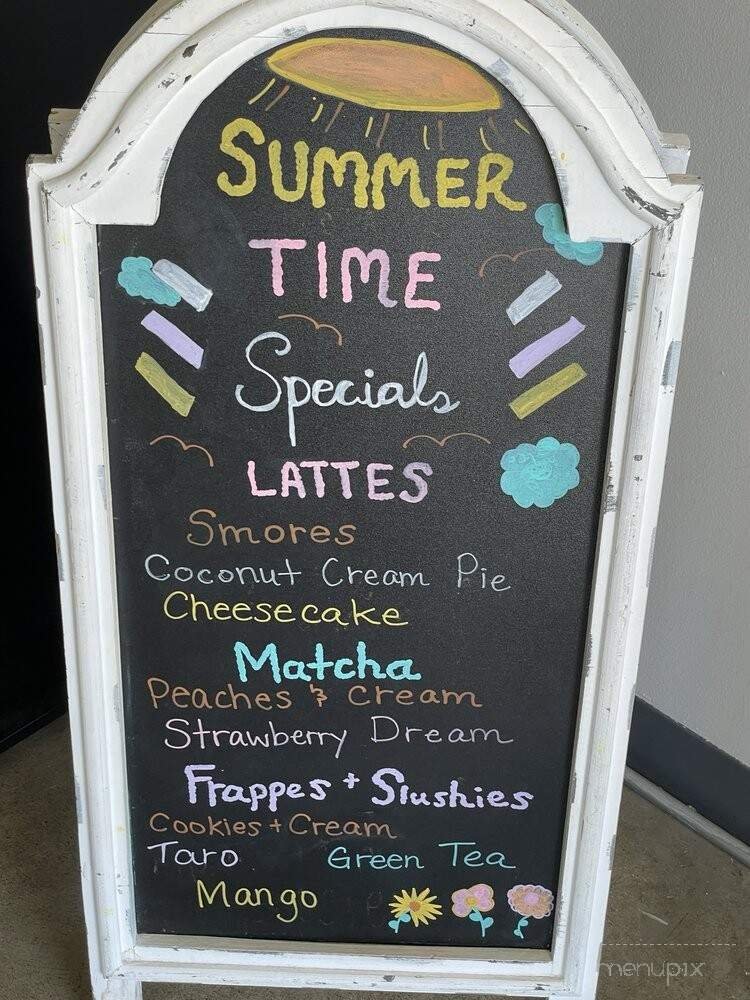 SUMMER
TIME
Specials
LATTES
Smores
Coconut Cream Pie
Cheesecake
Matcha
Peaches & Cream
Strawberry Dream
Frappes + Slushies
Cookies + Cream
Taro Green Tea
Mango
menupix